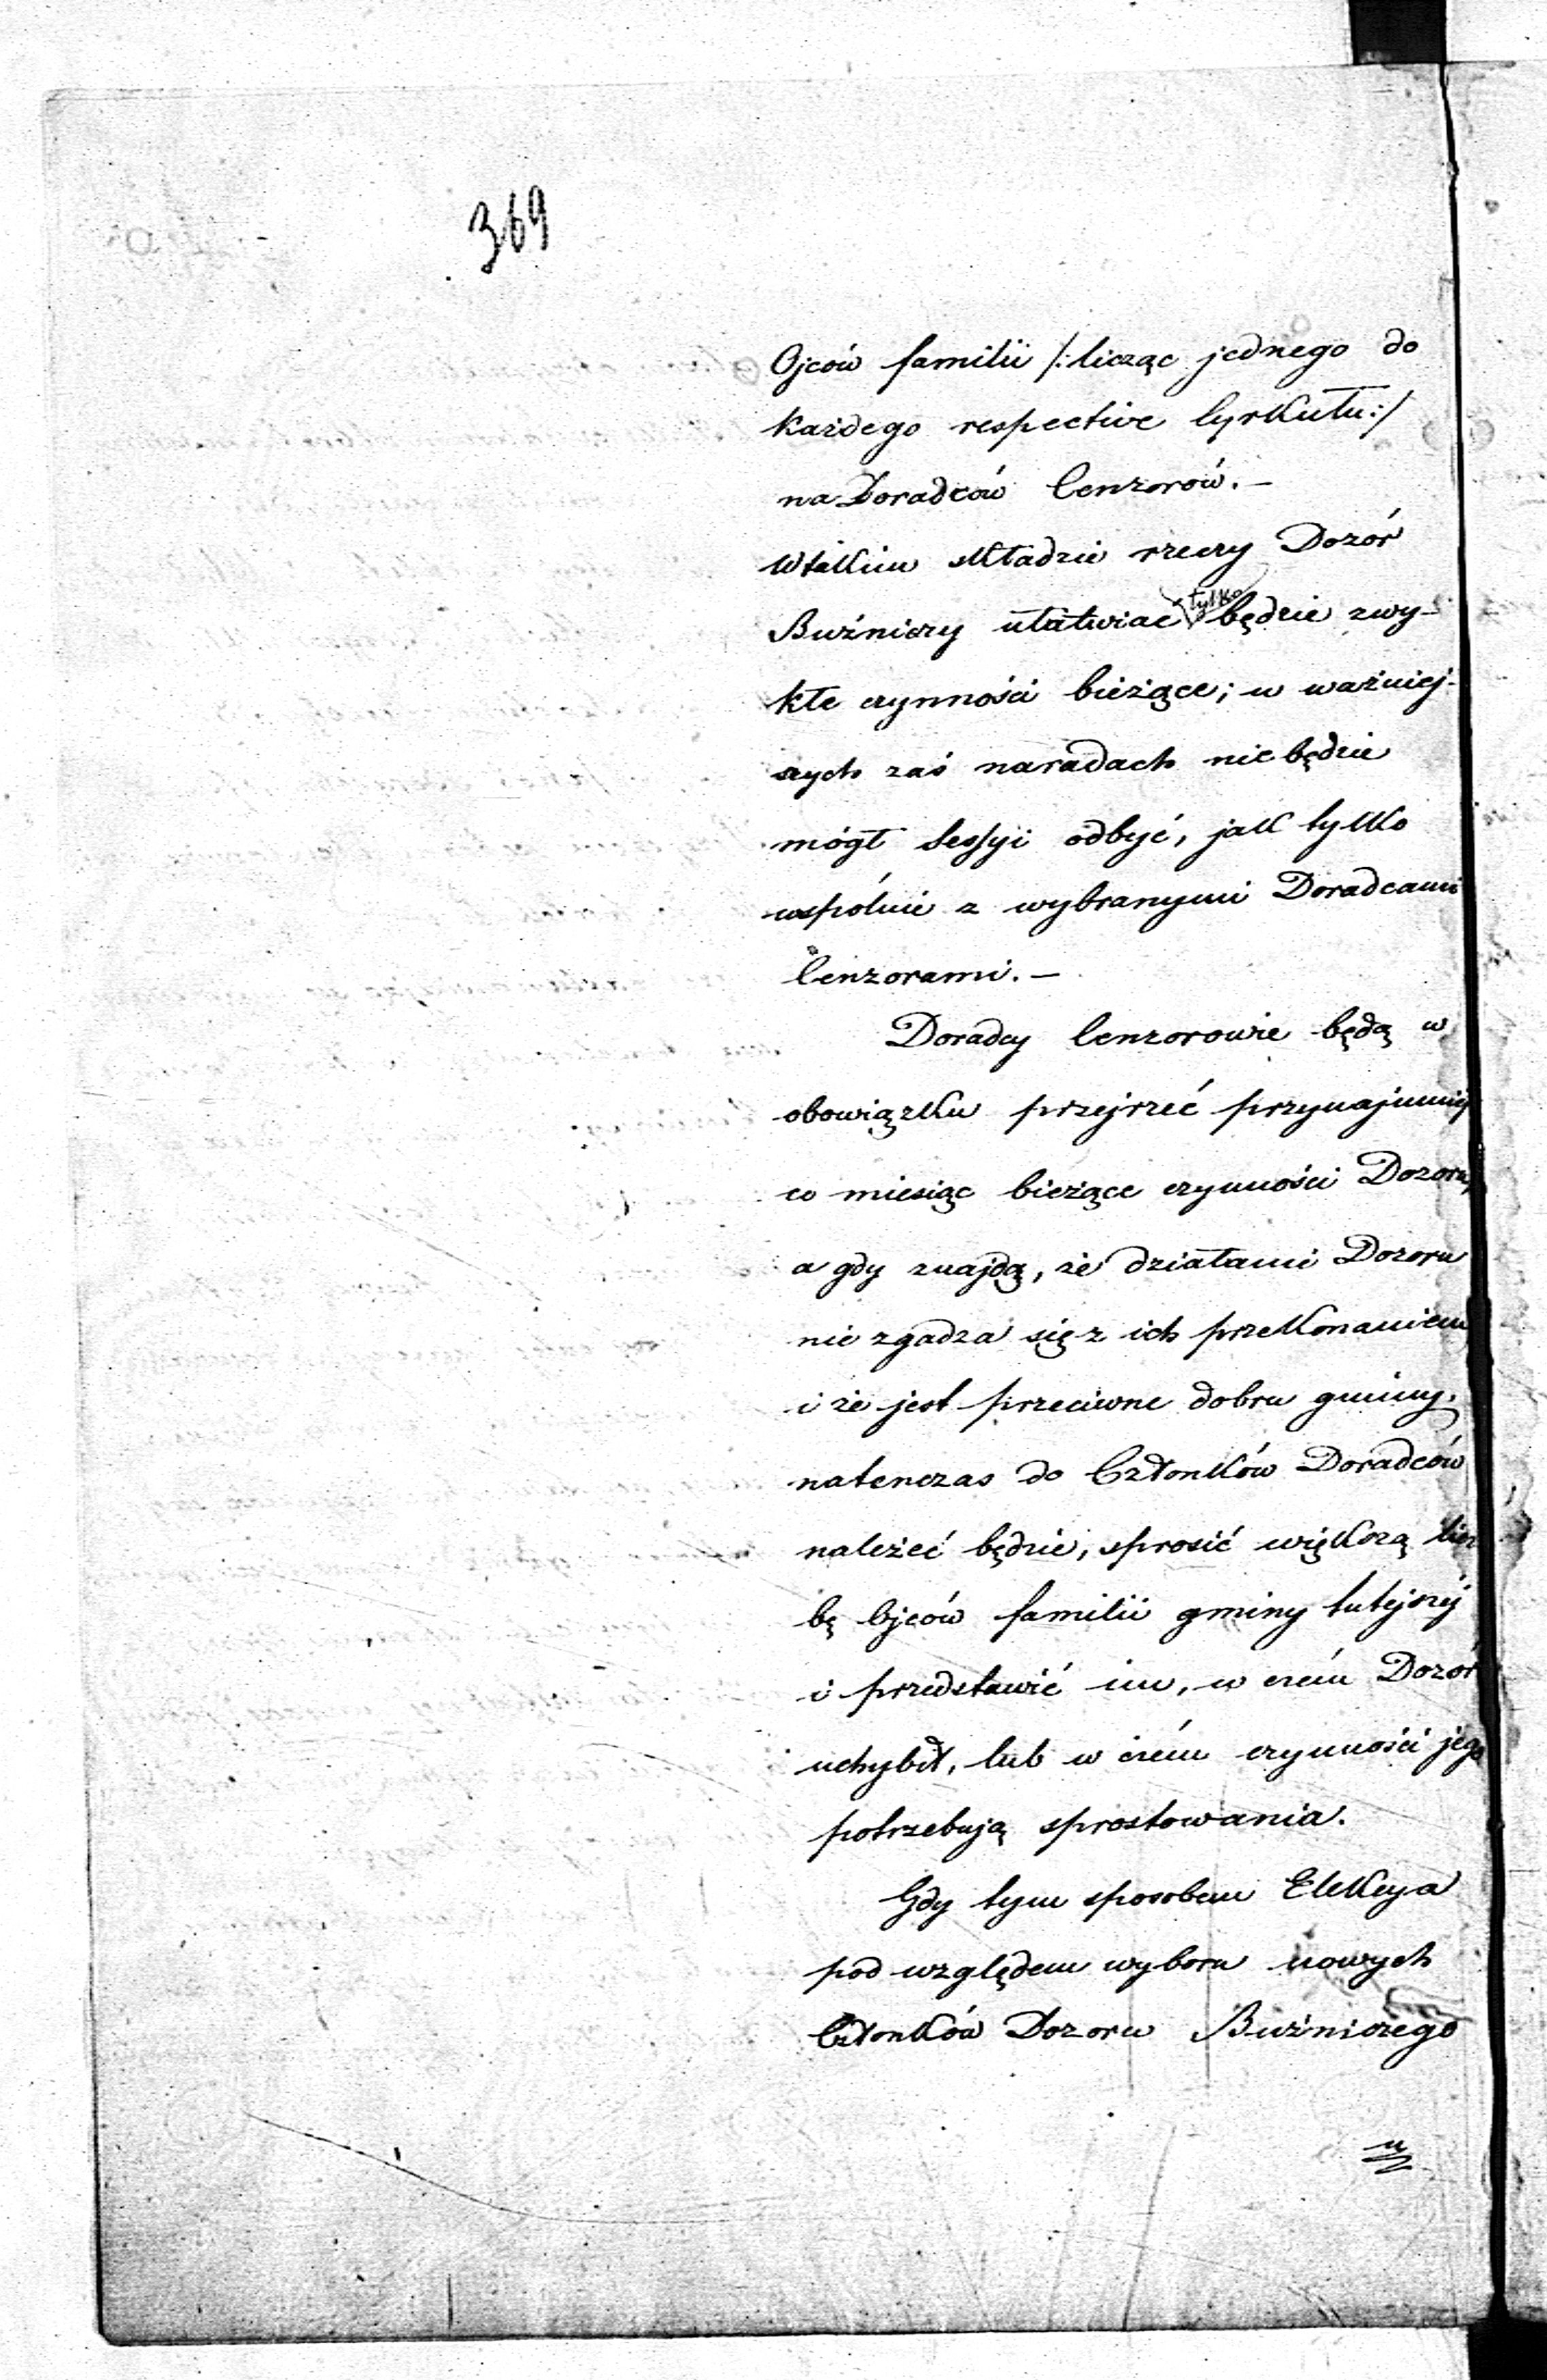 369
Ojców familii /: licząc jednego do
każdego respective Cyrkułu :/
na Doradców Cenzorów. –
W takim składzie rzeczy Dozór
Buźniczy ułatwiać tylko będzie zwy-
kłe czynności bieżące; w ważniej-
szych zaś naradach nie będzie
mógł Sessyi odbyć, jak tylko
wspólnie z wybranymi Doradcami
Cenzorami. –
Doradcy Cenzorowie będą w
obowiązku przejrzeć przynajmniej
co miesiąc bieżące czynności Dozoru,
a gdy znajdą, że działanie Dozoru
nie zgadza się z ich przekonaniem
i że jest przeciwne dobru gminy,
natenczas do Członków Doradców
należeć będzie, sprosić większą licz
bę Ojców familii gminy tutejszéj
i przedstawić im, w czém Dozór
uchybił, lub w czém czynności jego
potrzebują sprostowania.
Gdy tym sposobem Elekcya
pod względem wyboru nowych
Członków Dozoru Buźniczego
u